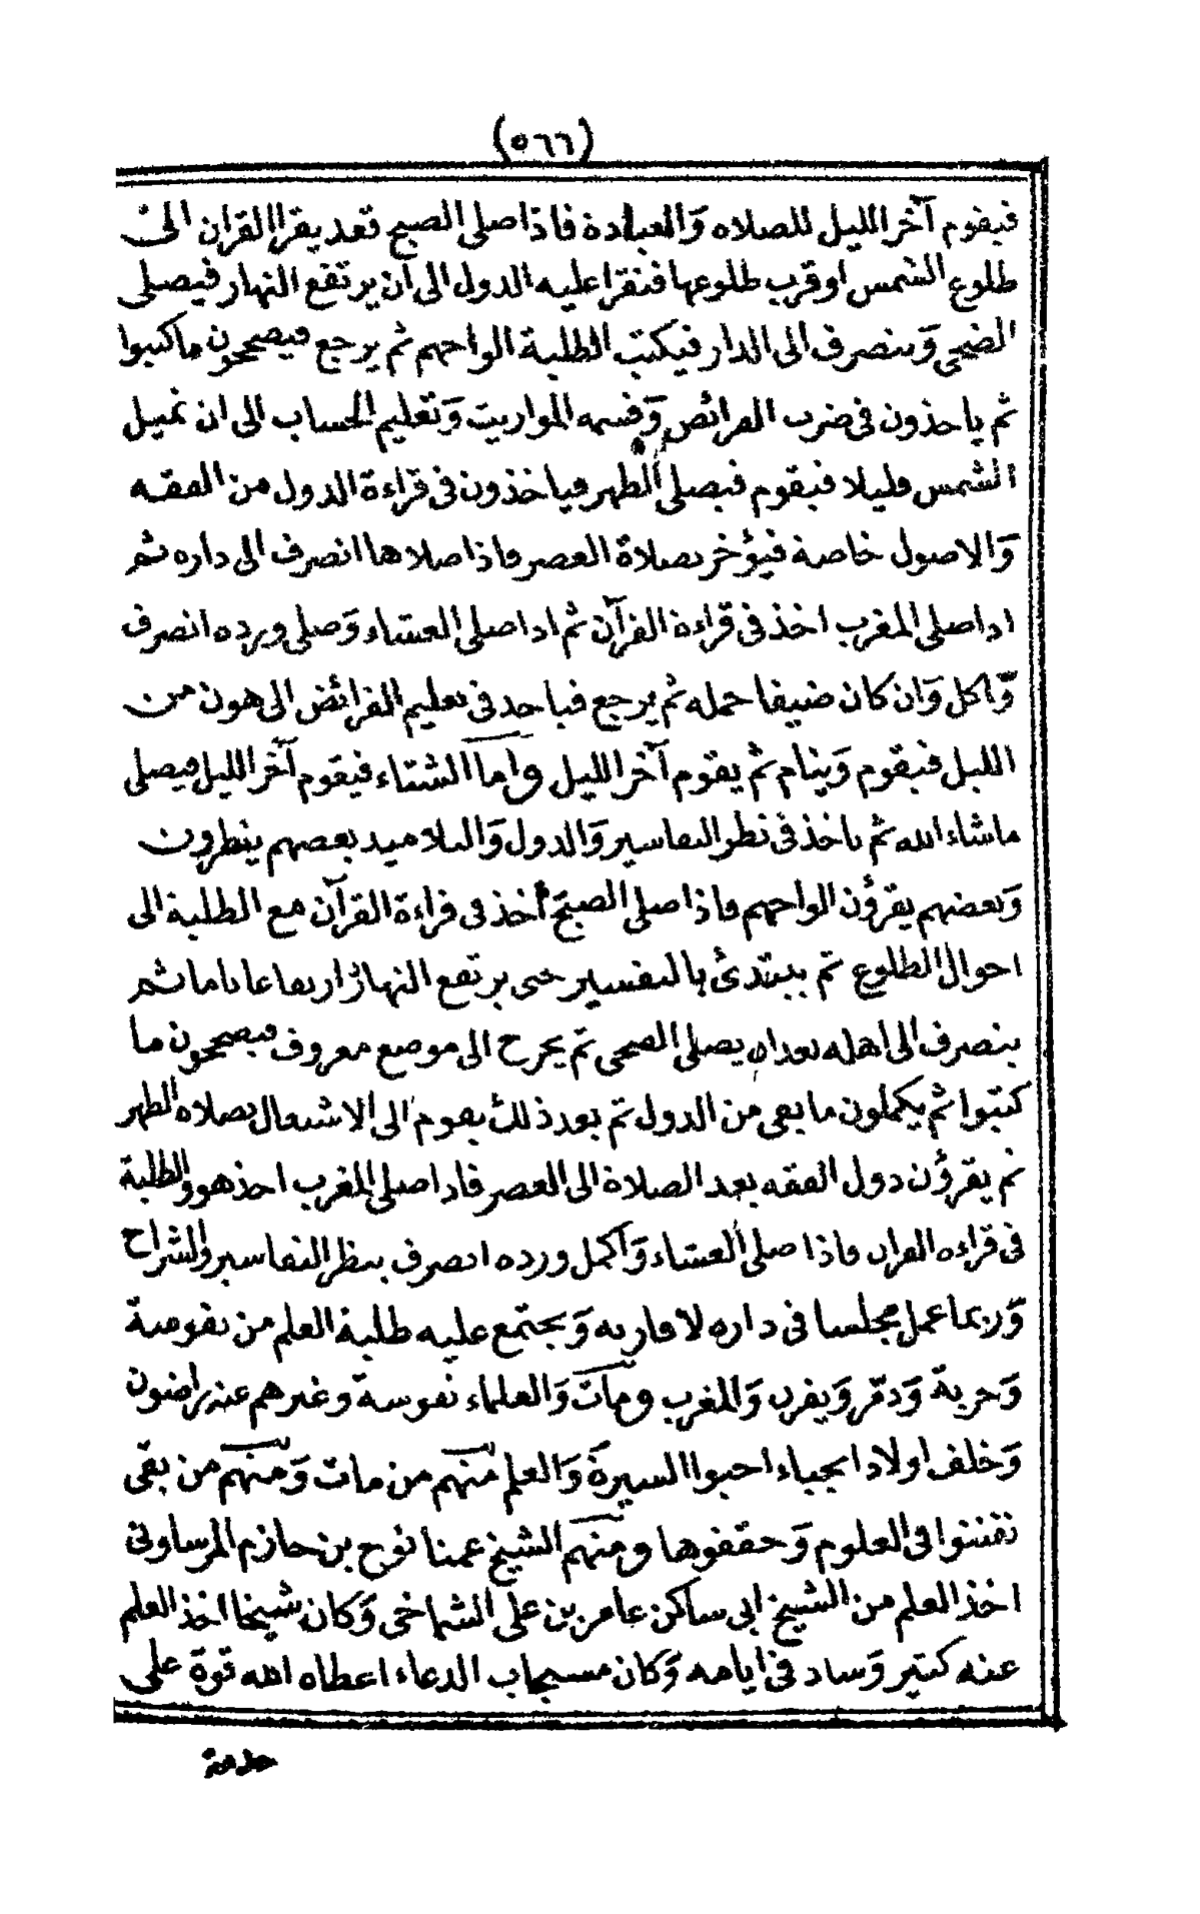 (٥٦٦)
فيقوم آخر الليل للصلاه والعبادة فاذا صلى الصبح قعد يقرا القران الى
طلوع الشمس او قرب طلوعها فتقرا عليه الدول الى ان يرتفع النهار فيصلى
الضحى وينصرف الى الدار فيكتب الطلبة الواحهم ثم يرجع فيصححون ما كتبوا
ثم ياخذون فى ضرب الفرائض وقسمه المواريت وتعليم الحساب الى ان تميل
الشمس قليلا فيقوم فيصلى الظهر فياخذون فى قراءة الدول من الفقه
والاصول خاصة فيؤخر بصلاة العصر فاذا صلاها انصرف الى داره ثم
اذا صلى المغرب اخذ فى قراءة القرآن ثم اذا صلى العشاء وصلى ورده انصرف
واكل وان كان ضيفا حمله ثم يرجع فياخذ فى تعليم الفرائض الى هون من
الليل فيقوم وينام ثم يقوم آخر الليل واما الشتاء فيقوم آخر الليل فيصلى
ما شاء الله ثم ياخذ فى نظر التفاسير والدول والتلاميذ بعضهم ينظرون
وبعضهم يقرؤن الواحهم فاذا صلى الصبح أخذ فى قراءة القرآن مع الطلبة الى
احوال الطلوع ثم يبتدئ بالتفسير حتى يرتفع النهار ارتفاعا تاما ثم
ينصرف الى اهله بعد ان يصلى الضحى ثم يخرج الى موضع معروف فيصححون ما
كتبوا ثم يكملون ما بقى من الدول ثم بعد ذلك يقوم الى الاشتغال بصلاه الظهر
ثم يقرؤن دول الفقه بعد الصلاة الى العصر فاذا صلى المغرب اخذ هو والطلبة
فى قراءه القران فاذا صلى العشاء واكمل ورده انصرف ينظر التفاسير والشراح
وربما عمل مجلسا فى داره لاقاربه ويجتمع عليه طلبة العلم من نفوسة
وجربة ودمر ويفرن والمغرب ومات والعلماء نفوسة وغيرهم عنه راضون
وخلف اولادا نجباء احبوا السيرة والعلم منهم من مات ومنهم من بقى
تفننوا فى العلوم وحققوها ومنهم الشيخ عمنا نوح بن حازم المرساونى
اخذ العلم من الشيخ ابى ساكن عامر بن على الشماخى وكان شيخا اخذ العلم
عنه كثير وساد فى ايامه وكان مستجاب الدعاء اعطاه الله قوة على